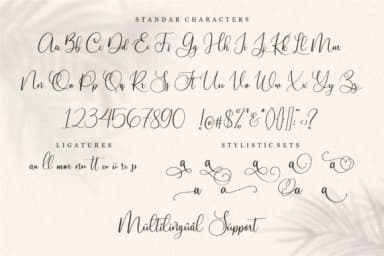 STANDAR CHARACTERS
Aa Bb Cc Dd Ee Ff Gg Hh Ii Jj Kk Ll Mm
Nn Oo Pp Qq Rr Ss Tt Uu Vv Ww Xx Yy Zz
1234567890 !@#$%^&*(){}[]:;<>?
LIGATURES
STYLISTIC SETS
Multilingual Support